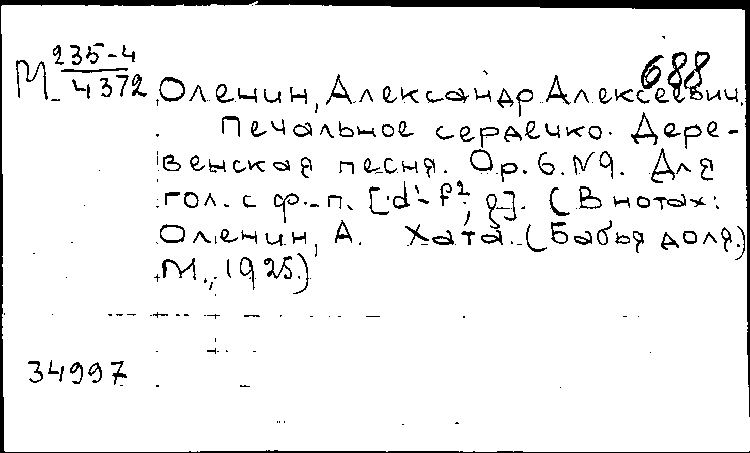 688
М 235-4
4372
Оленин, Александр Алексеевич.
Печальное сердечко. Дере-
венская песня. Op. 6. N9. Для
гол. с ф.-п. [d¹-f², g]. (В нотах:
Оленин, А. Хата. (Бабья доля.)
М., 1925.)
34997